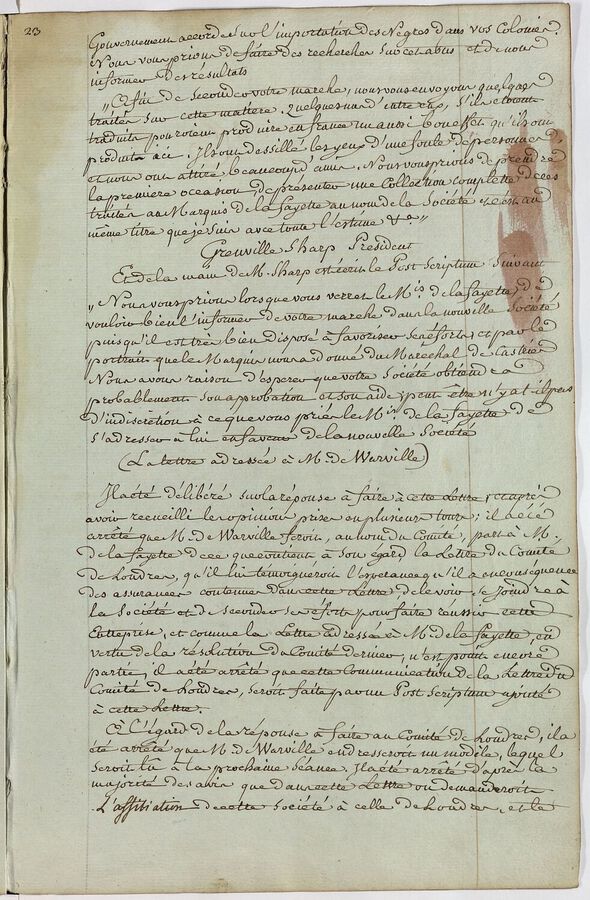 23
Gouvernement accorde sur l'importation des Negres dans vos Colonies.
Nous vous prions de faire des recherches sur cet abus et de nous
informer des resultats
„ Afin de seconder votre marche, nous vous envoyons quelques
traités sur cette matiere. Quelques uns d'entre eux, s'ils etoient
traduits pourroient produire en france un aussi bon effet qu'ils ont
produit ici. Ils ont dessillé les yeux d'une foule de personnes
et nous ont attiré beaucoup d'amis. Nous vous prions de prendre
la premiere occasion de presenter une Collection complette de ces
traités au Marquis de la fayette au nom de la Société et c'est au
même titre que je suis avec toute l'estime &a „
Grenville Sharp President
Et de la main de M. Sharp est écrit le Post Scriptum suivant
„ Nous vous prions lorsque vous verrez le Mis. de la fayette de
vouloir bien l'informer de votre marche dans la nouvelle Société
puisqu'il est très bien disposé à favoriser ses efforts, et par le
portrait que le Marquis nous a donné du Marechal de Castries
Nous avons raison d'esperer que votre Société obtiendra
probablement son approbation et son aide; peut être n'y at-il pas
d'indiscretion à ce que vous priez le Mis. de la fayette de
s'adresser à lui en faveur de la nouvelle Société
(La lettre adressée à M. de Warville)
Il a été déliberé sur la réponse à faire à cette Lettre, et après
avoir recueilli les opinions prises en plusieurs tours; il a été
arrêté que M. de Warville feroit, au nom du Comité, part à M.
de la fayette de ce que contient à son égard la Lettre du Comité
de Londres, qu'il lui témoigneroit l'esperance qu'il a en conséquence
des assurances contenues dans cette Lettre de le voir se joindre à
la Société et de seconder ses efforts pour faire reussir cette
Entreprise, et comme la Lettre adressée à M. de la fayette, en
vertu de la résolution du Comité dernier, n'est point encore
partie, il a été arrêté que cette Communication de la Lettre du
Comité de Londres, seroit faite par un Post Scriptum ajouté
à cette Lettre.
A l'égard de la réponse à faire au Comité de Londres, il a
été arrêté que M. de Warville en dresseroit un modèle, lequel
seroit lu à la prochaine Séance. Il a été arrêté d'après la
majorité des avis que dans cette Lettre on demanderoit
L'affiliation de cette Société à celle de Londres, et la